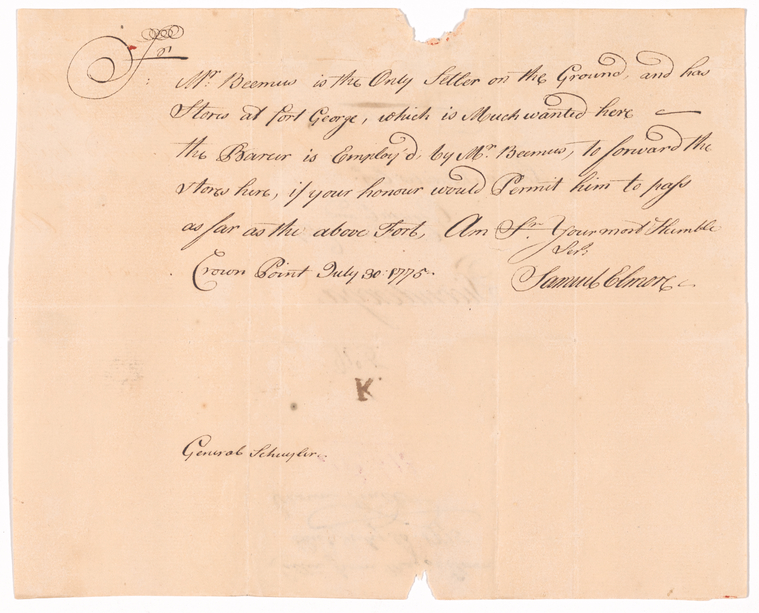 Sr
Mr. Beemus is the Only Setler on the Ground, and has
Stores at fort George, which is Much wanted here
the Barer is Employ'd by Mr. Beemus, to forward the
stores here, if your honour would Permit him to pass
as far as the above Fort, Am Sr. Your most Humble
Sert.
Crown Point July 30 1775. Samuel Elmore
K.
General Schuyler